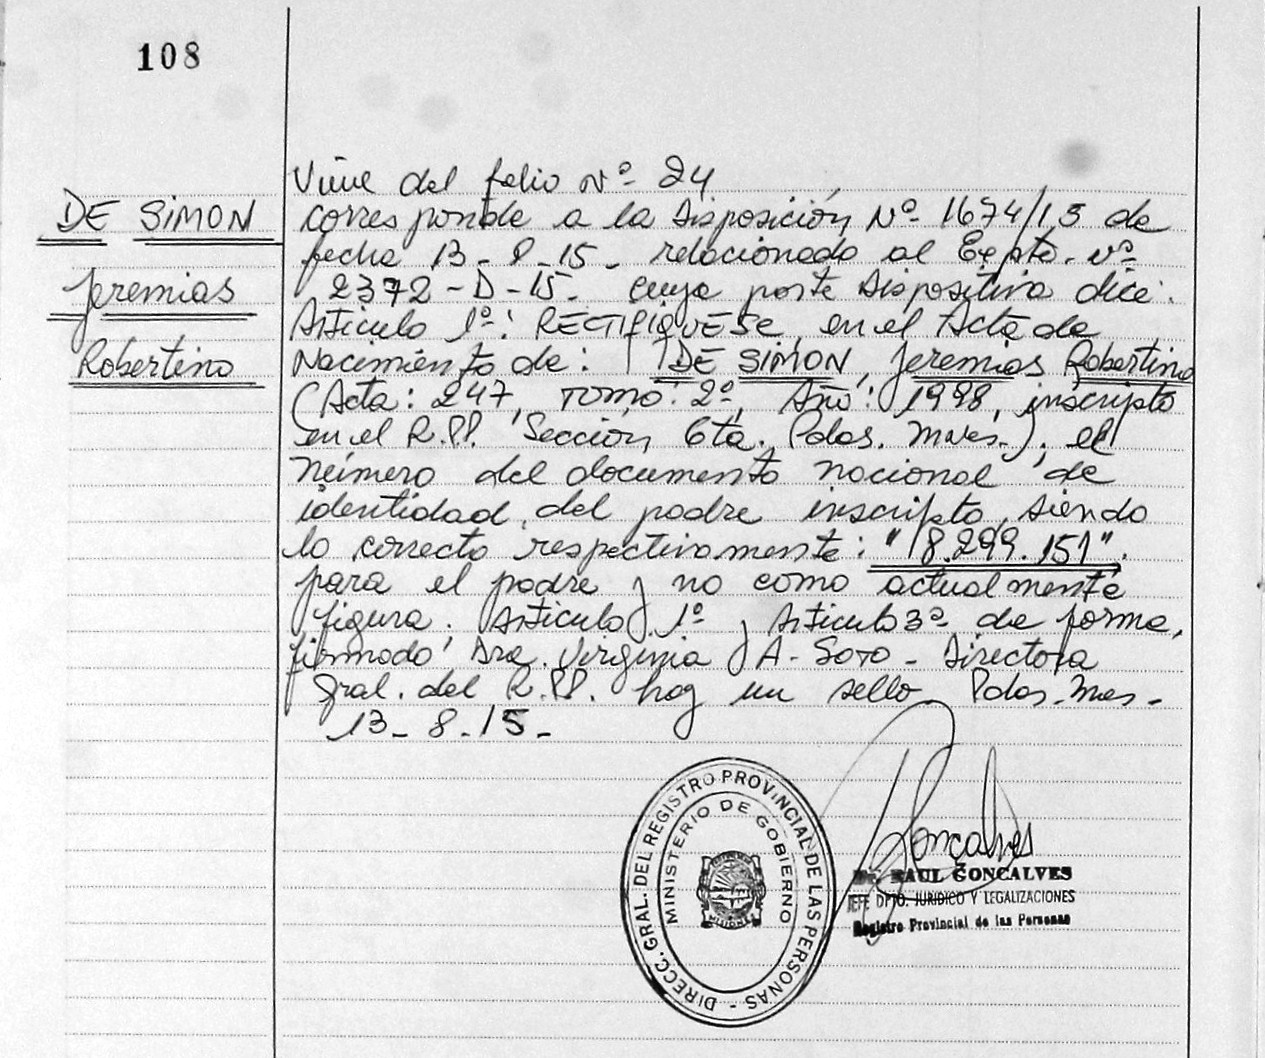 108
DE SIMON
Jeremias
Robertino
Viene del folio Nº 24
corresponde a la Disposición Nº 1674/15 de
fecha 13-8-15- relacionado al Expte. nº
2372-D-15- cuya parte Dispositiva dice:
Articulo 1º: RECTIFIQUESE en el Acta de
Nacimiento de: DE SIMON, Jeremias Robertino
(Acta: 247, Tomo: 2º, Año: 1998, inscripto
en el R.PP. Sección 6ta. Pdas. Mnes.), el
número del documento nacional de
identidad del padre inscripto, siendo
lo correcto respectivamente: "18.299.151".
para el padre y no como actualmente
figura. Articulo 1º y Articulo 3º de forma,
firmado Dra. Virginia A- Soto - Directora
Gral. del R.PP. hay un sello Pdas. Mnes-
13-8-15-
DIRECC. GRAL. DEL REGISTRO PROVINCIAL DE LAS PERSONAS -
MINISTERIO DE GOBIERNO
MISIONES
Gonçalves
Dr. RAUL GONCALVES
JEFE DPTO. JURIDICO Y LEGALIZACIONES
Registro Provincial de las Personas